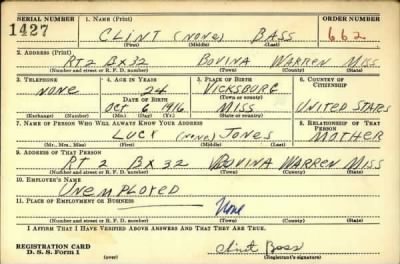 SERIAL NUMBER 1. NAME (Print) ORDER NUMBER
1427 CLINT (NONE) BASS 662
(First) (Middle) (Last)
2. ADDRESS (Print)
RT 2 BX 32 BOVINA WARREN MISS
(Number and street or R. F. D. number) (Town) (County) (State)
3. TELEPHONE 4. AGE IN YEARS 5. PLACE OF BIRTH 6. COUNTRY OF CITIZENSHIP
NONE 24 VICKSBURG
DATE OF BIRTH (Town or county)
OCT 6 1916 MISS UNITED STATES
(Exchange) (Number) (Mo.) (Day) (Yr.) (State or country)
7. NAME OF PERSON WHO WILL ALWAYS KNOW YOUR ADDRESS 8. RELATIONSHIP OF THAT PERSON
LUCY (NONE) JONES MOTHER
(Mr., Mrs., Miss) (First) (Middle) (Last)
9. ADDRESS OF THAT PERSON
RT 2 BX 32 BOVINA WARREN MISS
(Number and street or R. F. D. number) (Town) (County) (State)
10. EMPLOYER'S NAME
UNEMPLOYED
11. PLACE OF EMPLOYMENT OR BUSINESS
None
(Number and street or R. F. D. number) (Town) (County) (State)
I AFFIRM THAT I HAVE VERIFIED ABOVE ANSWERS AND THAT THEY ARE TRUE.
REGISTRATION CARD Clint Bass
D. S. S. Form 1 (over) (Registrant's signature)